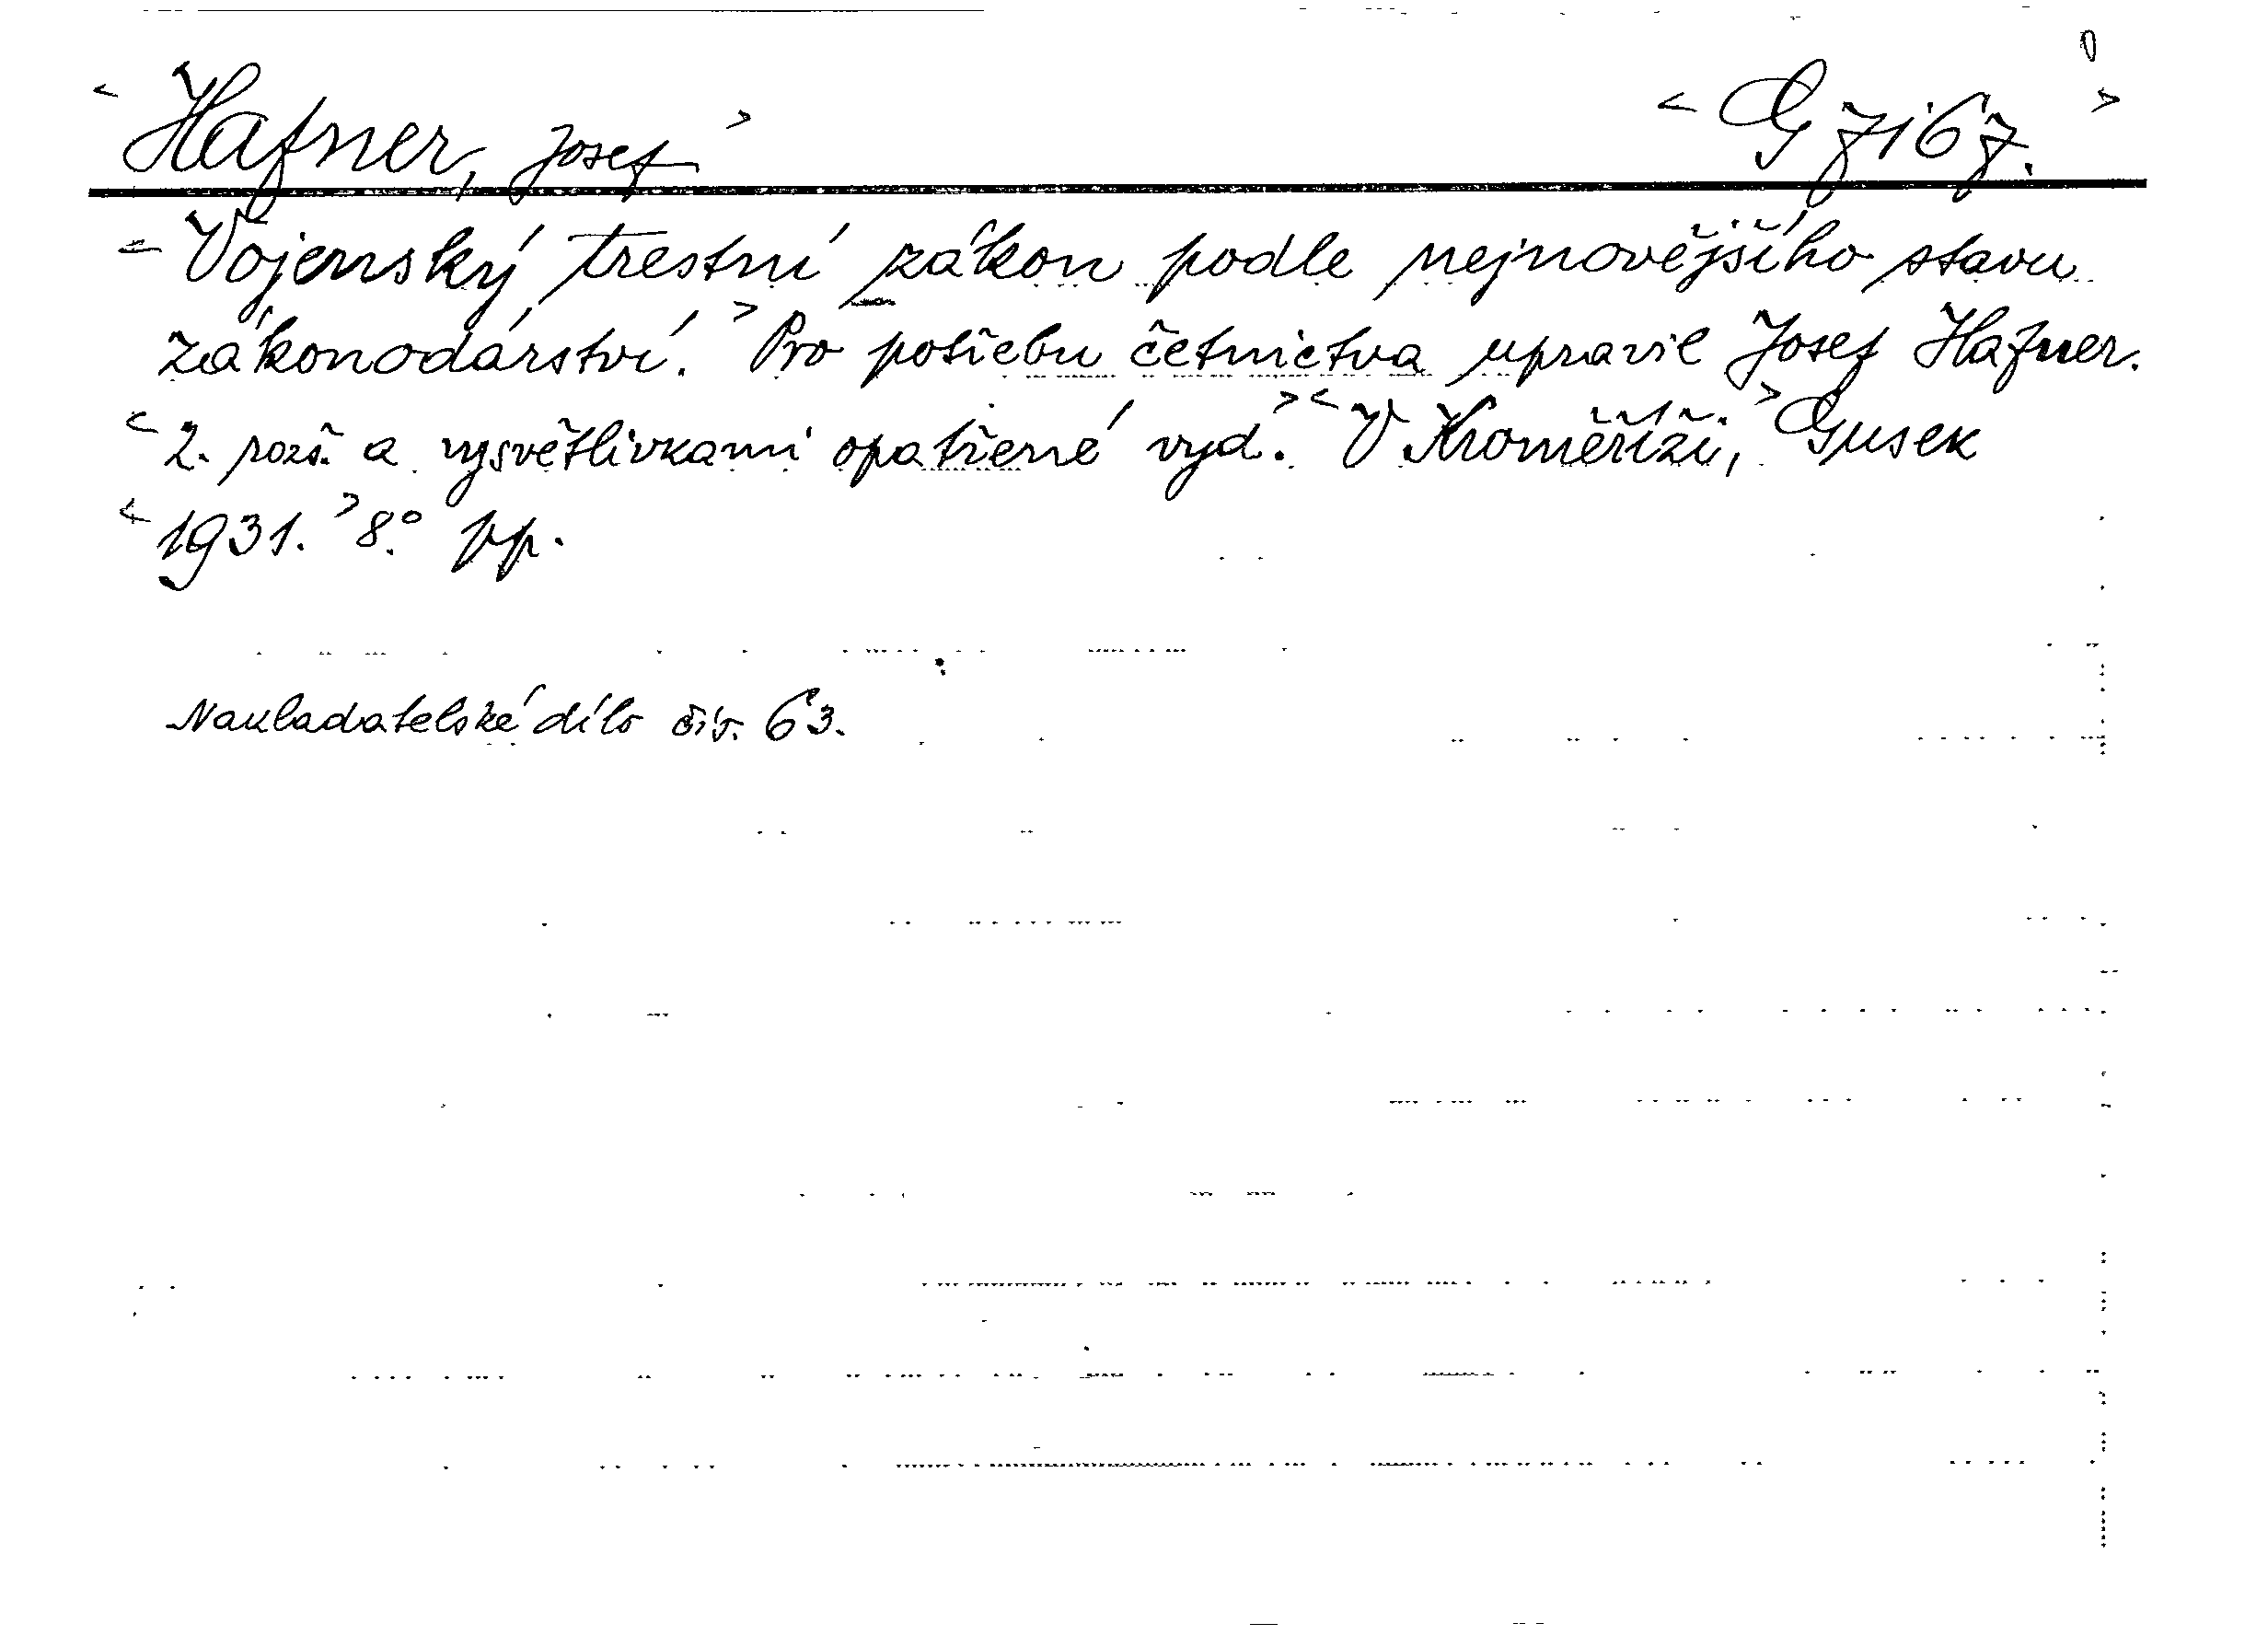 < Hafner, Josef > < G 7167. >
< Vojenský trestní zákon podle nejnovějšího stavu
zákonodárství. > Pro potřebu četnictva upravil Josef Hafner.
< 2. rozš. a vysvětlivkami opatřené vyd. > < V Kroměříži, > Gusek
< 1931. > 8.° pp.
Nakladatelské dílo čís. 63.